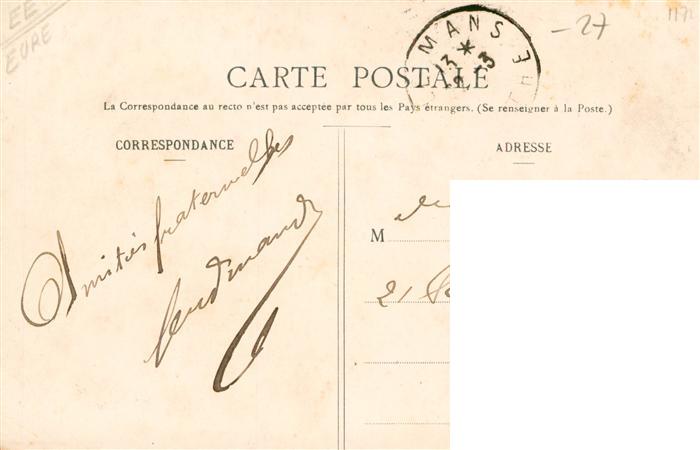 EE
EURE
MANS
13 *
- 27
CARTE POSTALE
La Correspondance au recto n'est pas acceptée par tous les Pays étrangers. (Se renseigner à la Poste.)
CORRESPONDANCE
ADRESSE
Amitiés fraternelles
Ferdinand
M
21